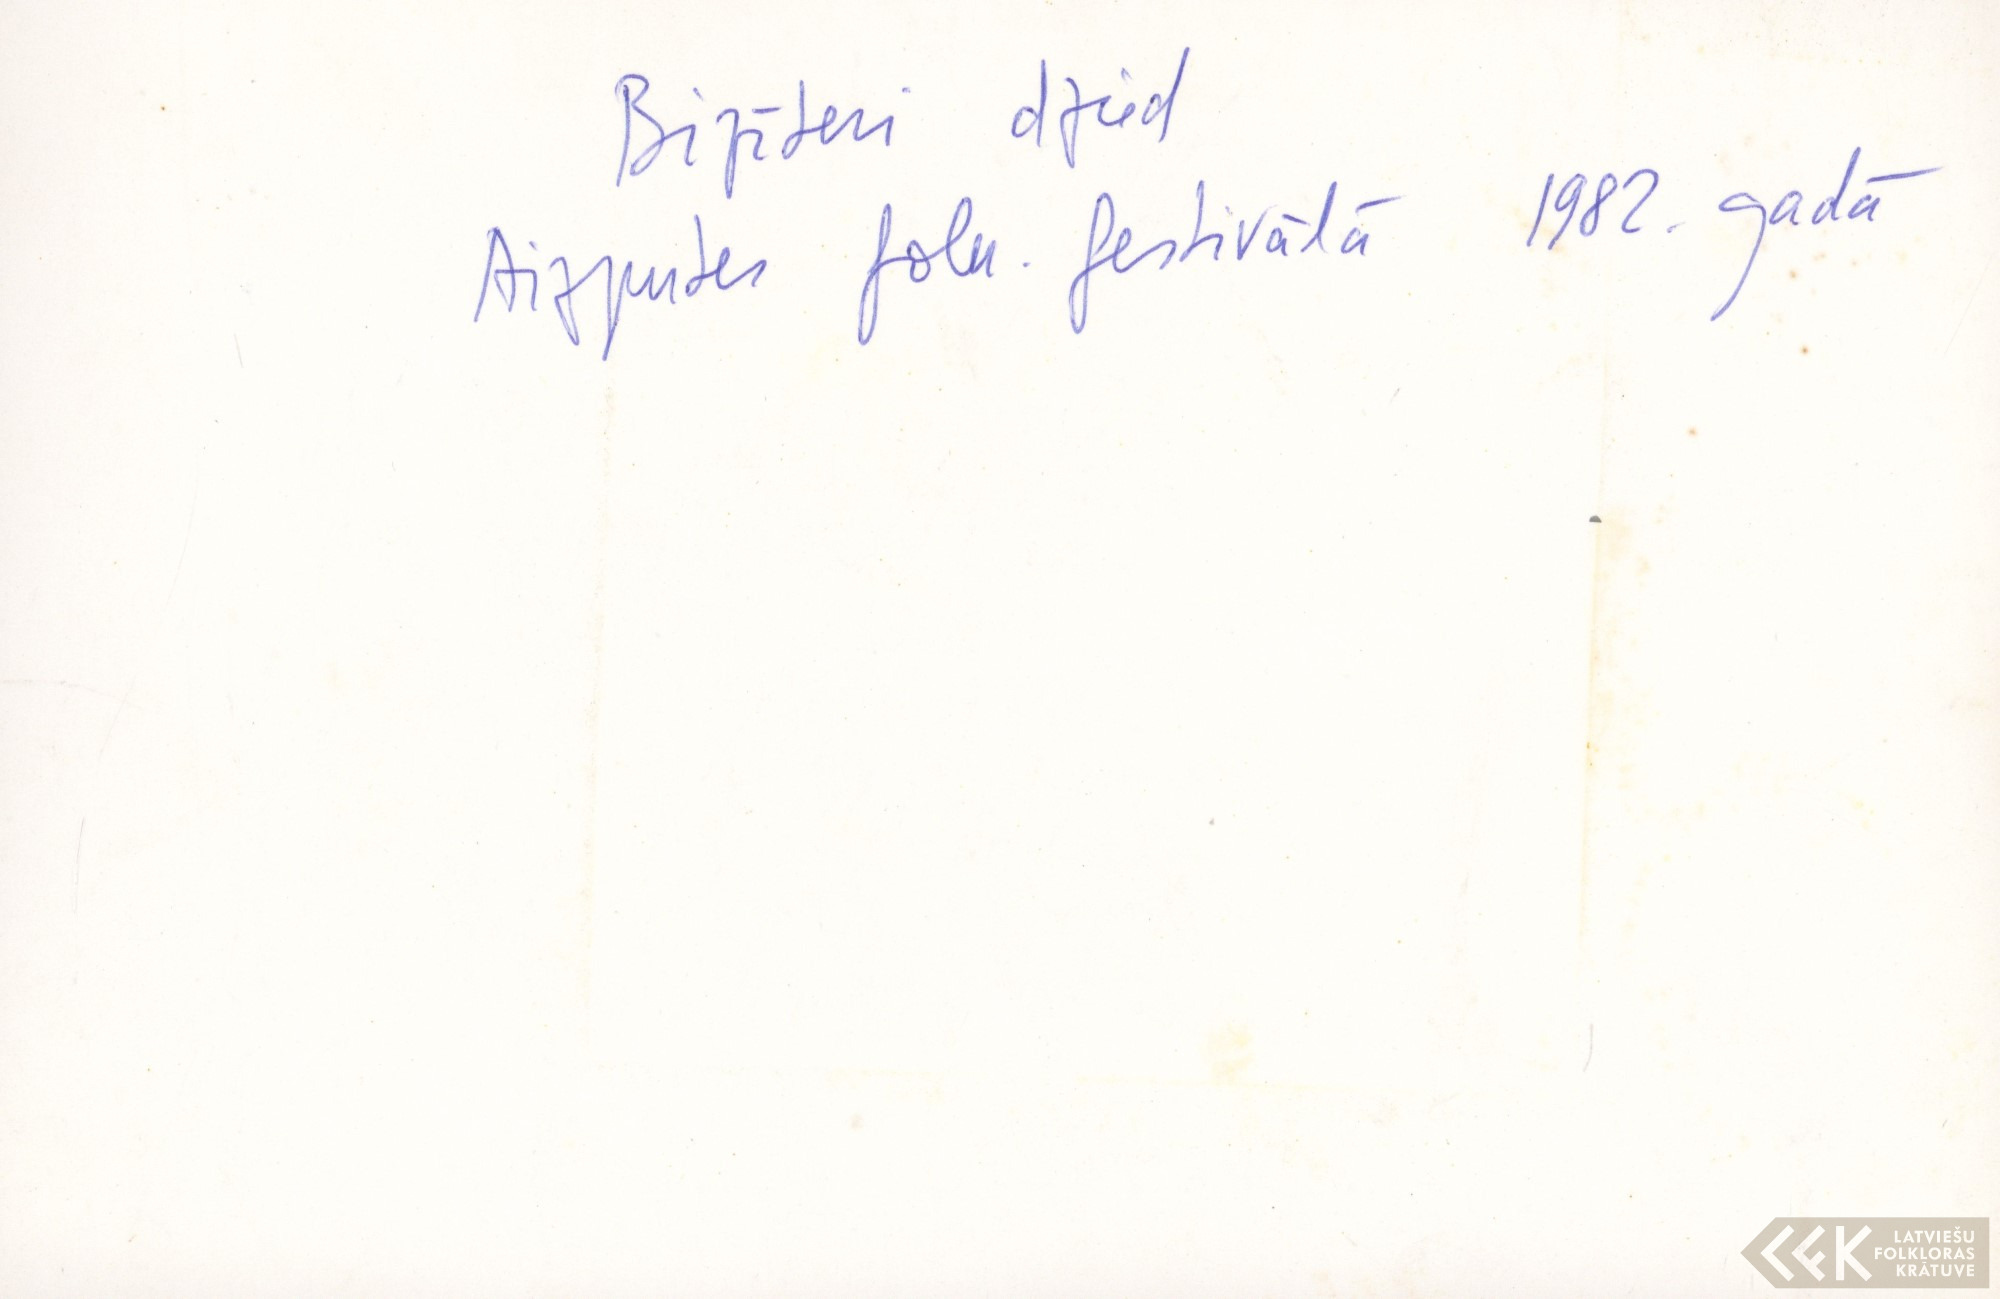 Bizīteri dzied
Aizputes folk. festivālā 1982. gadā
LATVIEŠU
FOLKLORAS
KRĀTUVE